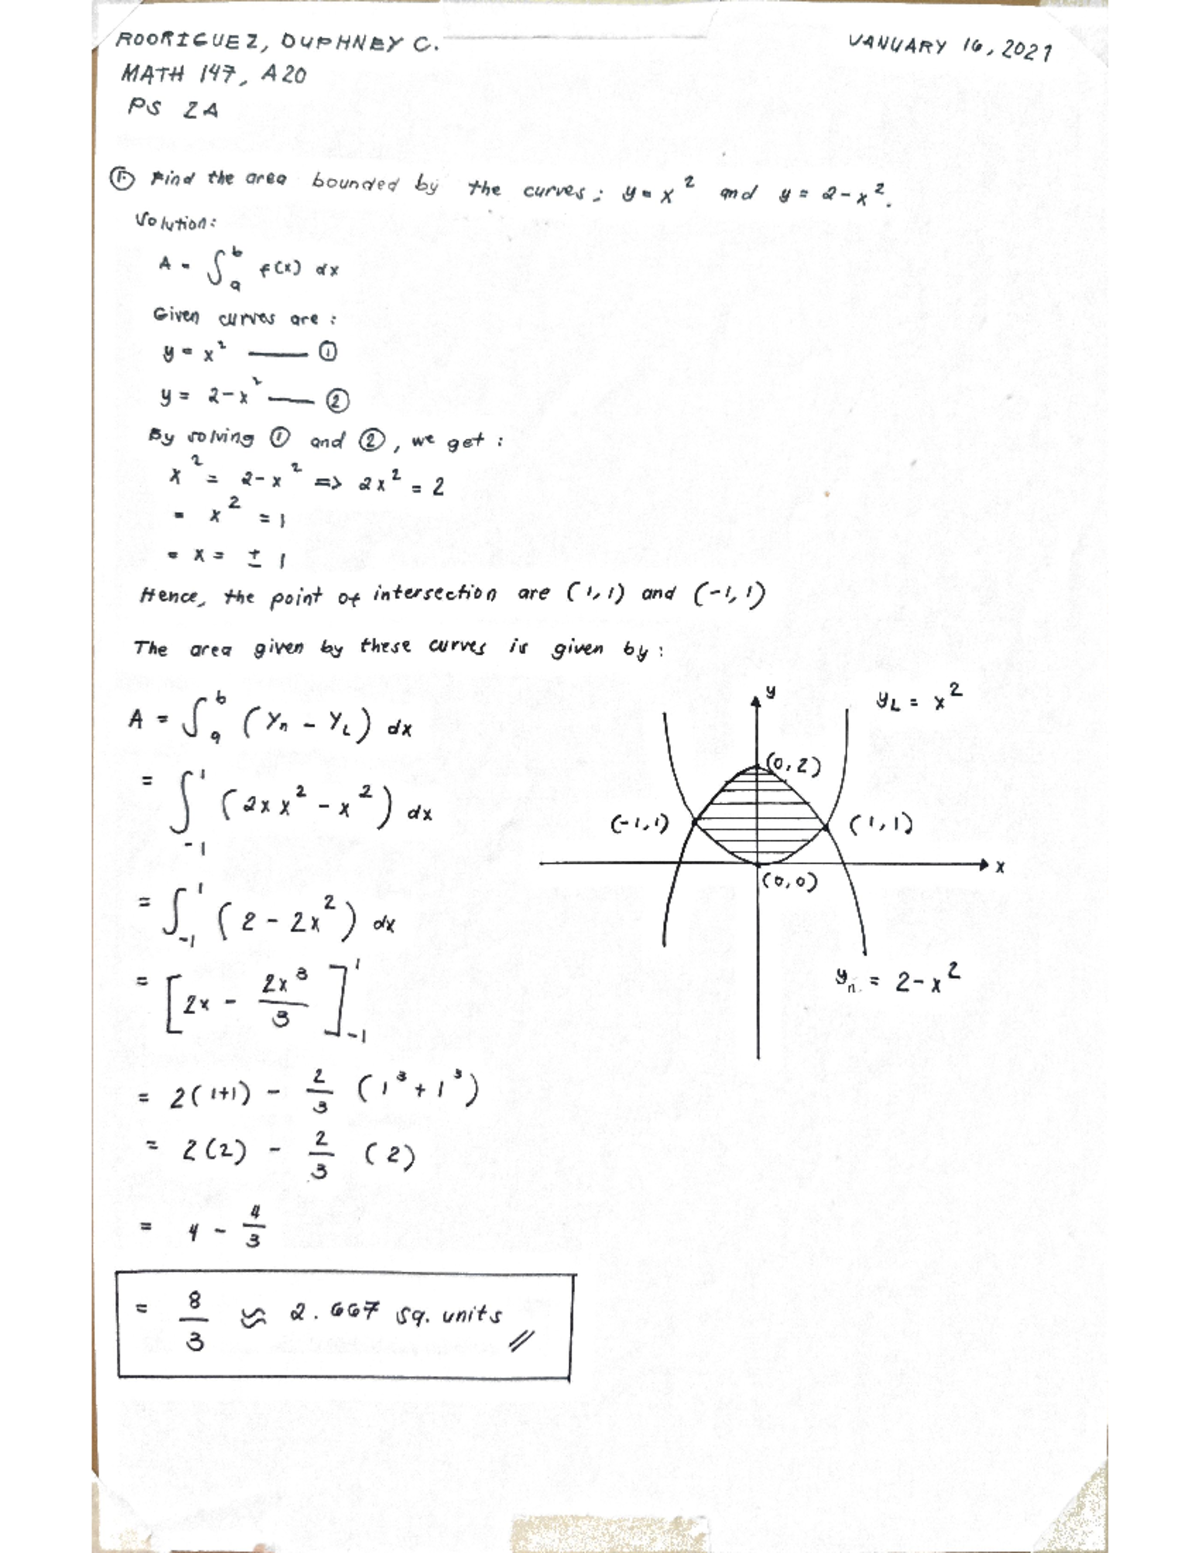 RODRIGUEZ, DUPHNEY C.
JANUARY 16, 2021
MATH 147, A20
PS 2A
① Find the area bounded by the curves; y = x² and y = 2-x².
Solution:
A = ∫ₐᵇ f(x) dx
Given curves are :
y = x² —— ①
y = 2-x² —— ②
By solving ① and ②, we get :
x² = 2-x² => 2x² = 2
= x² = 1
= x = ± 1
Hence, the point of intersection are (1,1) and (-1,1)
The area given by these curves is given by :
A = ∫ₐᵇ (Yₙ - Y_L) dx
= ∫₋₁¹ (2x x² - x²) dx
= ∫₋₁¹ (2 - 2x²) dx
= [2x - 2x³/3]₋₁¹
= 2(1+1) - 2/3 (1³+1³)
= 2(2) - 2/3 (2)
= 4 - 4/3
= 8/3 ≈ 2.667 sq. units //
y
y_L = x²
(0,2)
(-1,1)
(1,1)
x
(0,0)
yₙ = 2-x²